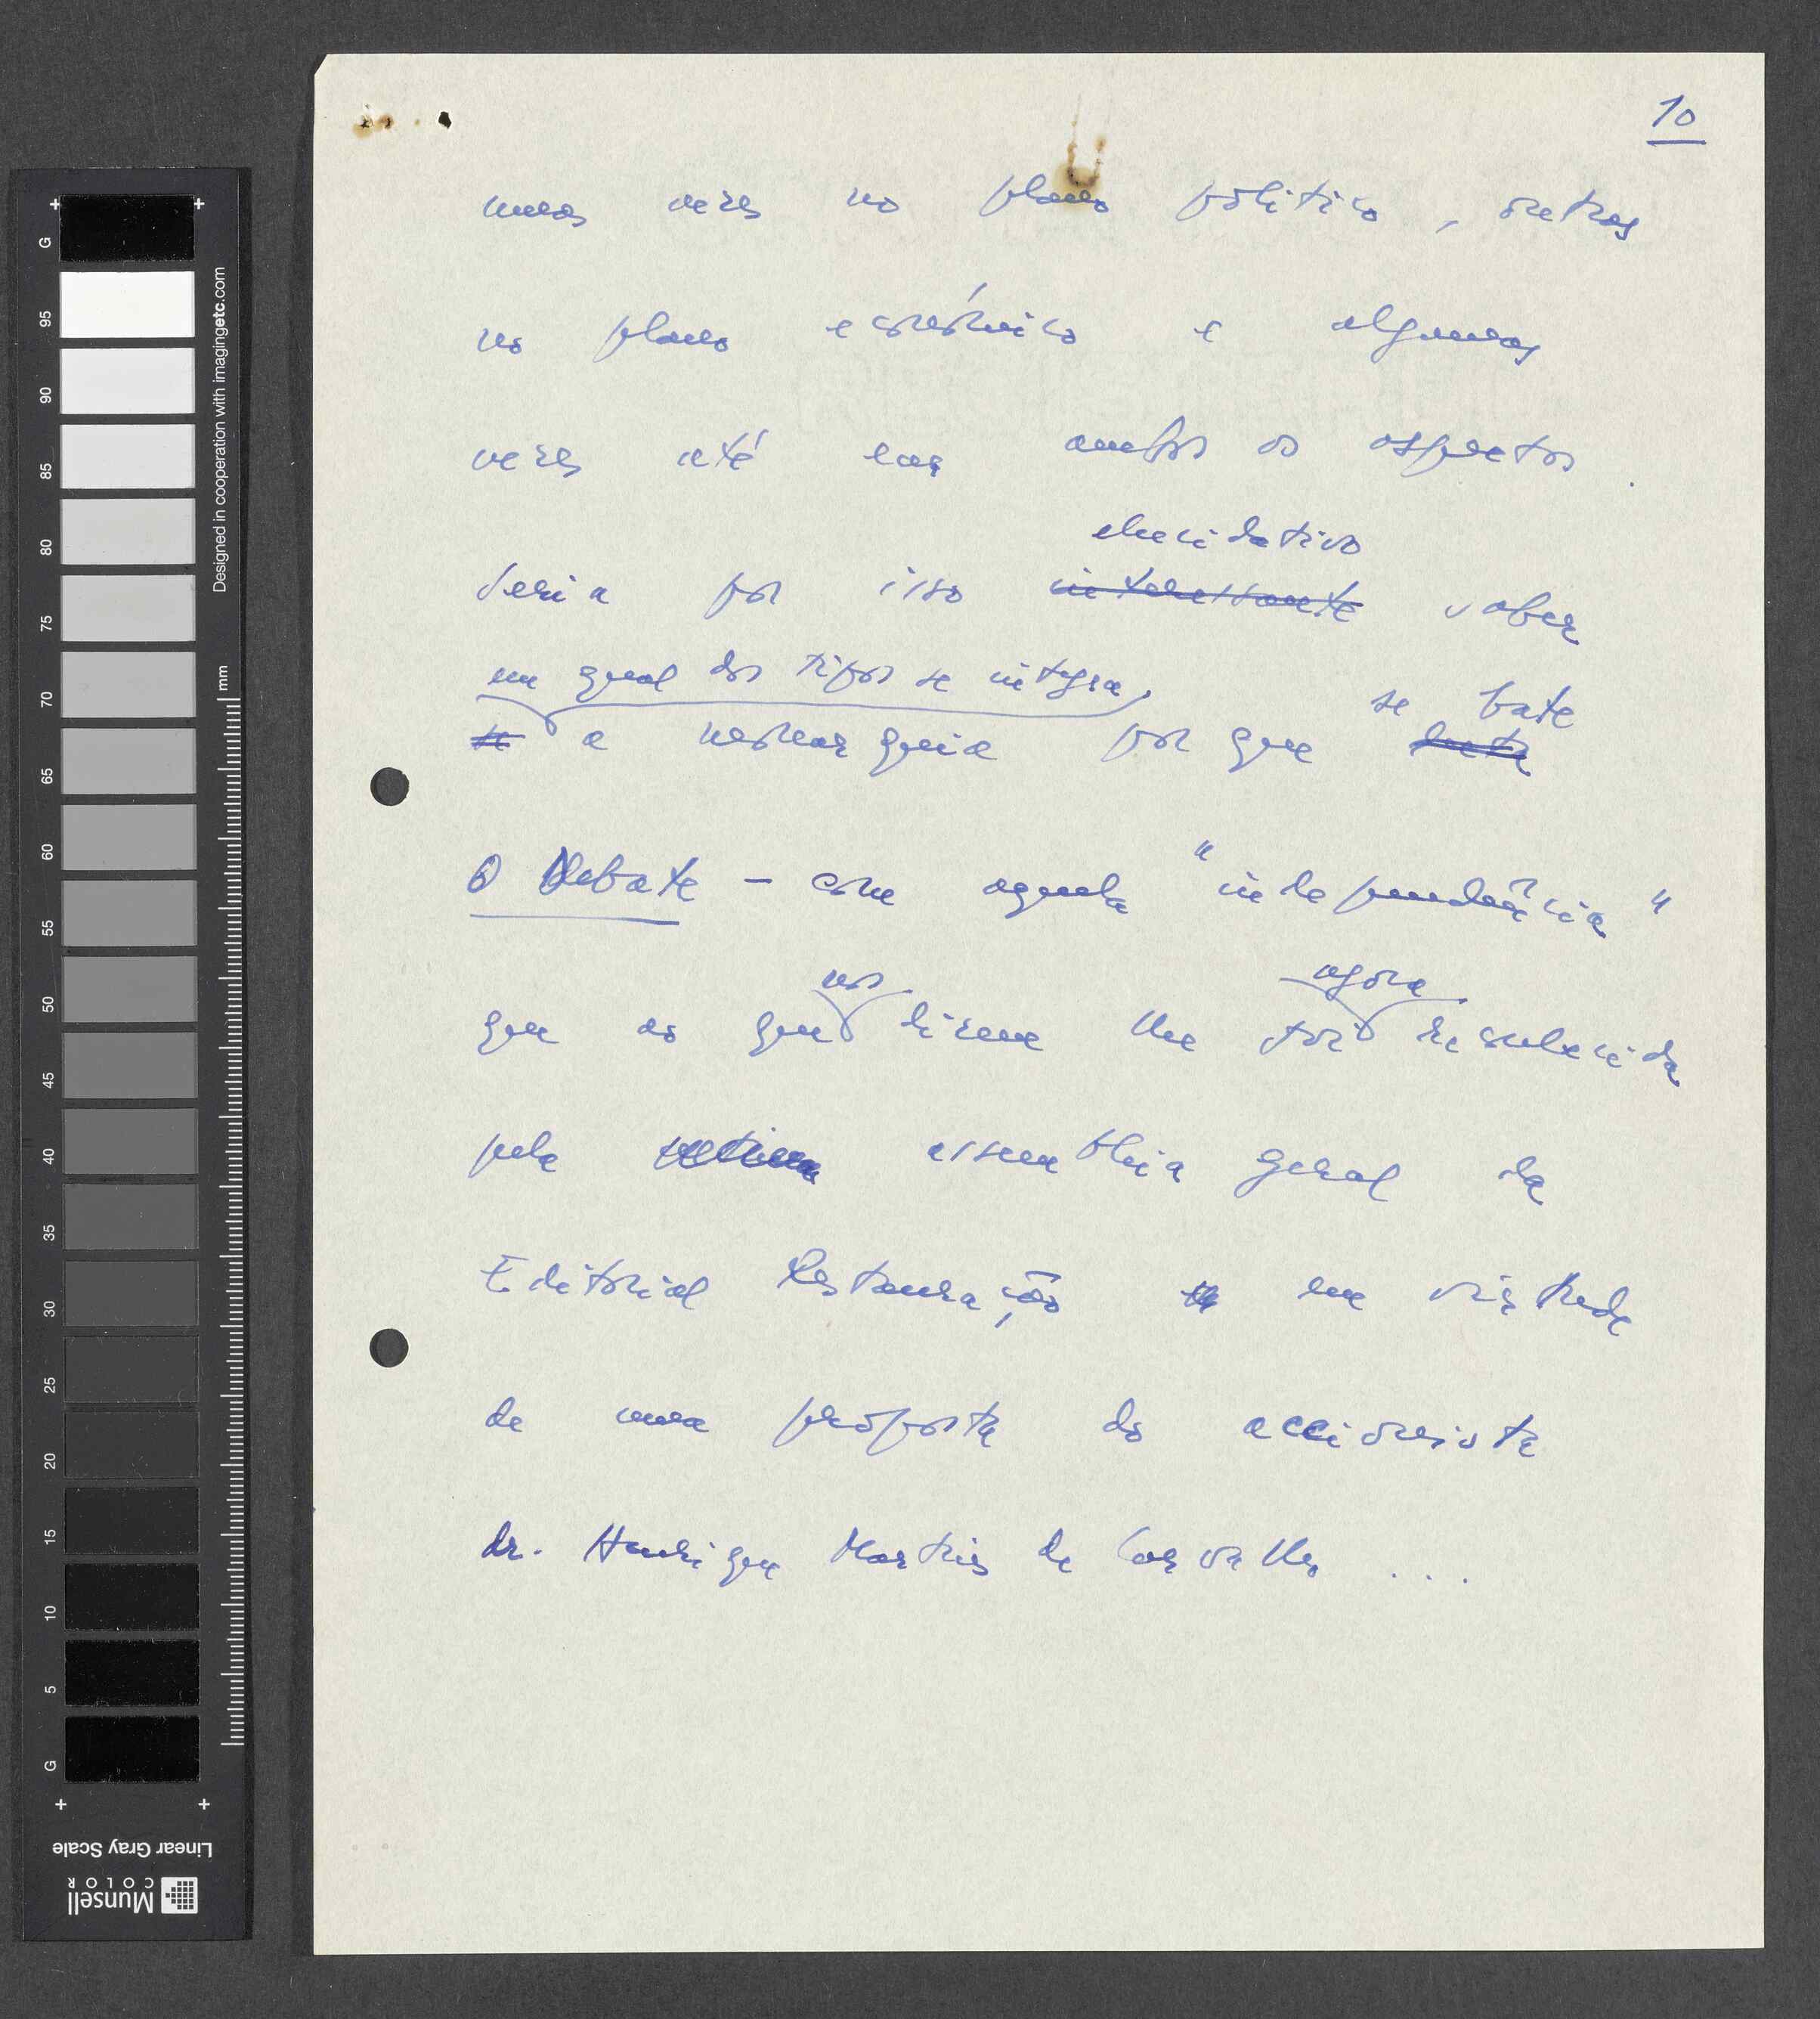 10
umas vezes no plano político, outras
no plano económico e algumas
vezes até em ambos os aspectos.
elucidativo
Seria por isso interessante saber
em qual dos tipos se integra,
se bate
se a monarquia por que luta
O Debate – com aquela "independência"
nos
agora
que os que dizem lhe foi reconhecida
pela última assembleia geral da
Editorial Restauração em virtude
de uma proposta do accionista
dr. Henrique Martins de Carvalho ...
G
95
90
85
80
75
70
65
60
55
50
45
40
35
30
25
20
15
10
5
G
mm
Designed in cooperation with imagingetc.com
Linear Gray Scale
Munsell
COLOR